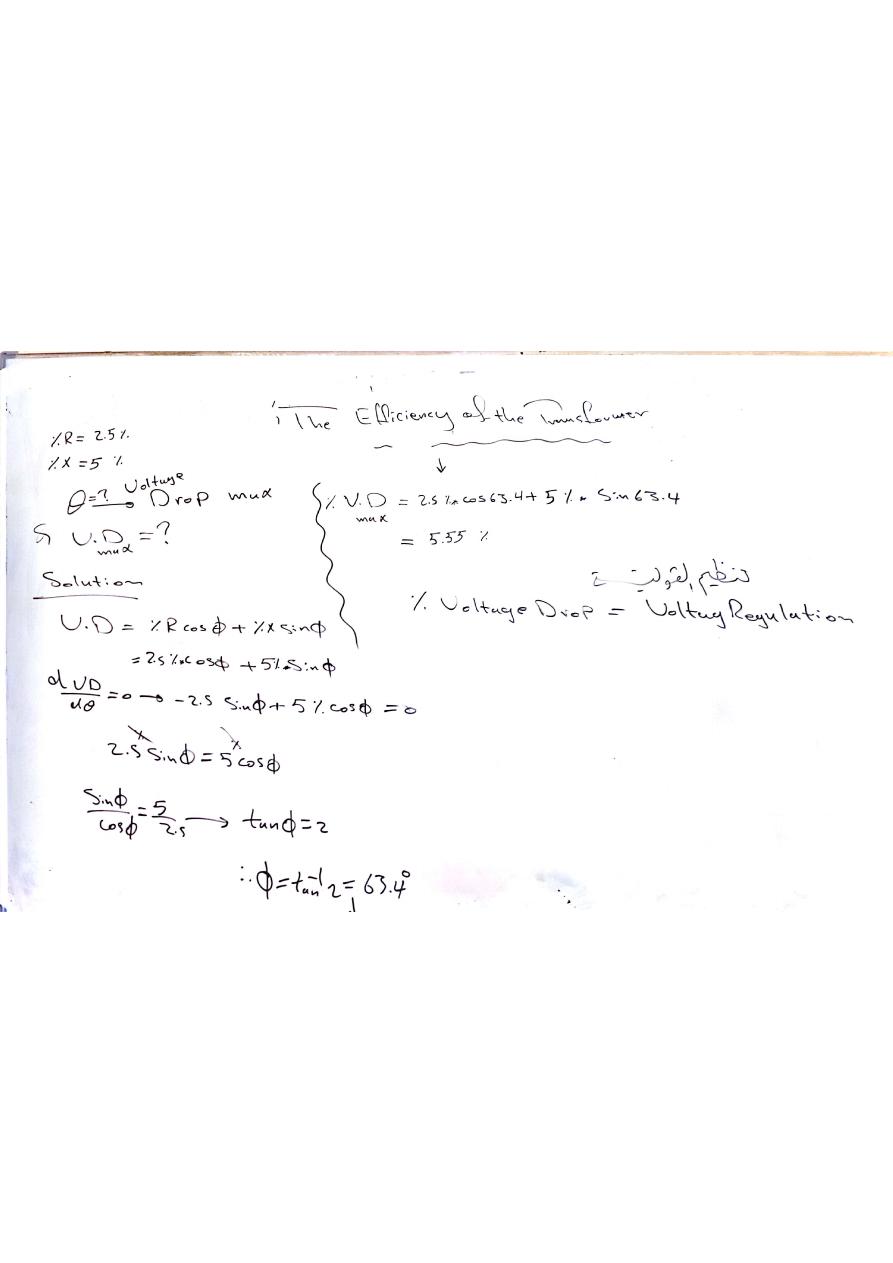 The Efficiency of the Transformer
%R = 2.5%
%X = 5 %
θ=? → Voltage Drop max
V.D max = ?
Solution
V.D = %R cosϕ + %X sinϕ
= 2.5%*cosϕ + 5%*sinϕ
dVD/dθ = 0 → -2.5 sinϕ + 5 % cosϕ = 0
2.5 sinϕ = 5 cosϕ
sinϕ/cosϕ = 5/2.5 → tanϕ = 2
∴ ϕ = tan⁻¹ 2 = 63.4°
% V.D max = 2.5 %* cos 63.4 + 5 % * Sin 63.4
= 5.55 %
تنظيم الفولتية
% Voltage Drop = Voltag Regulation